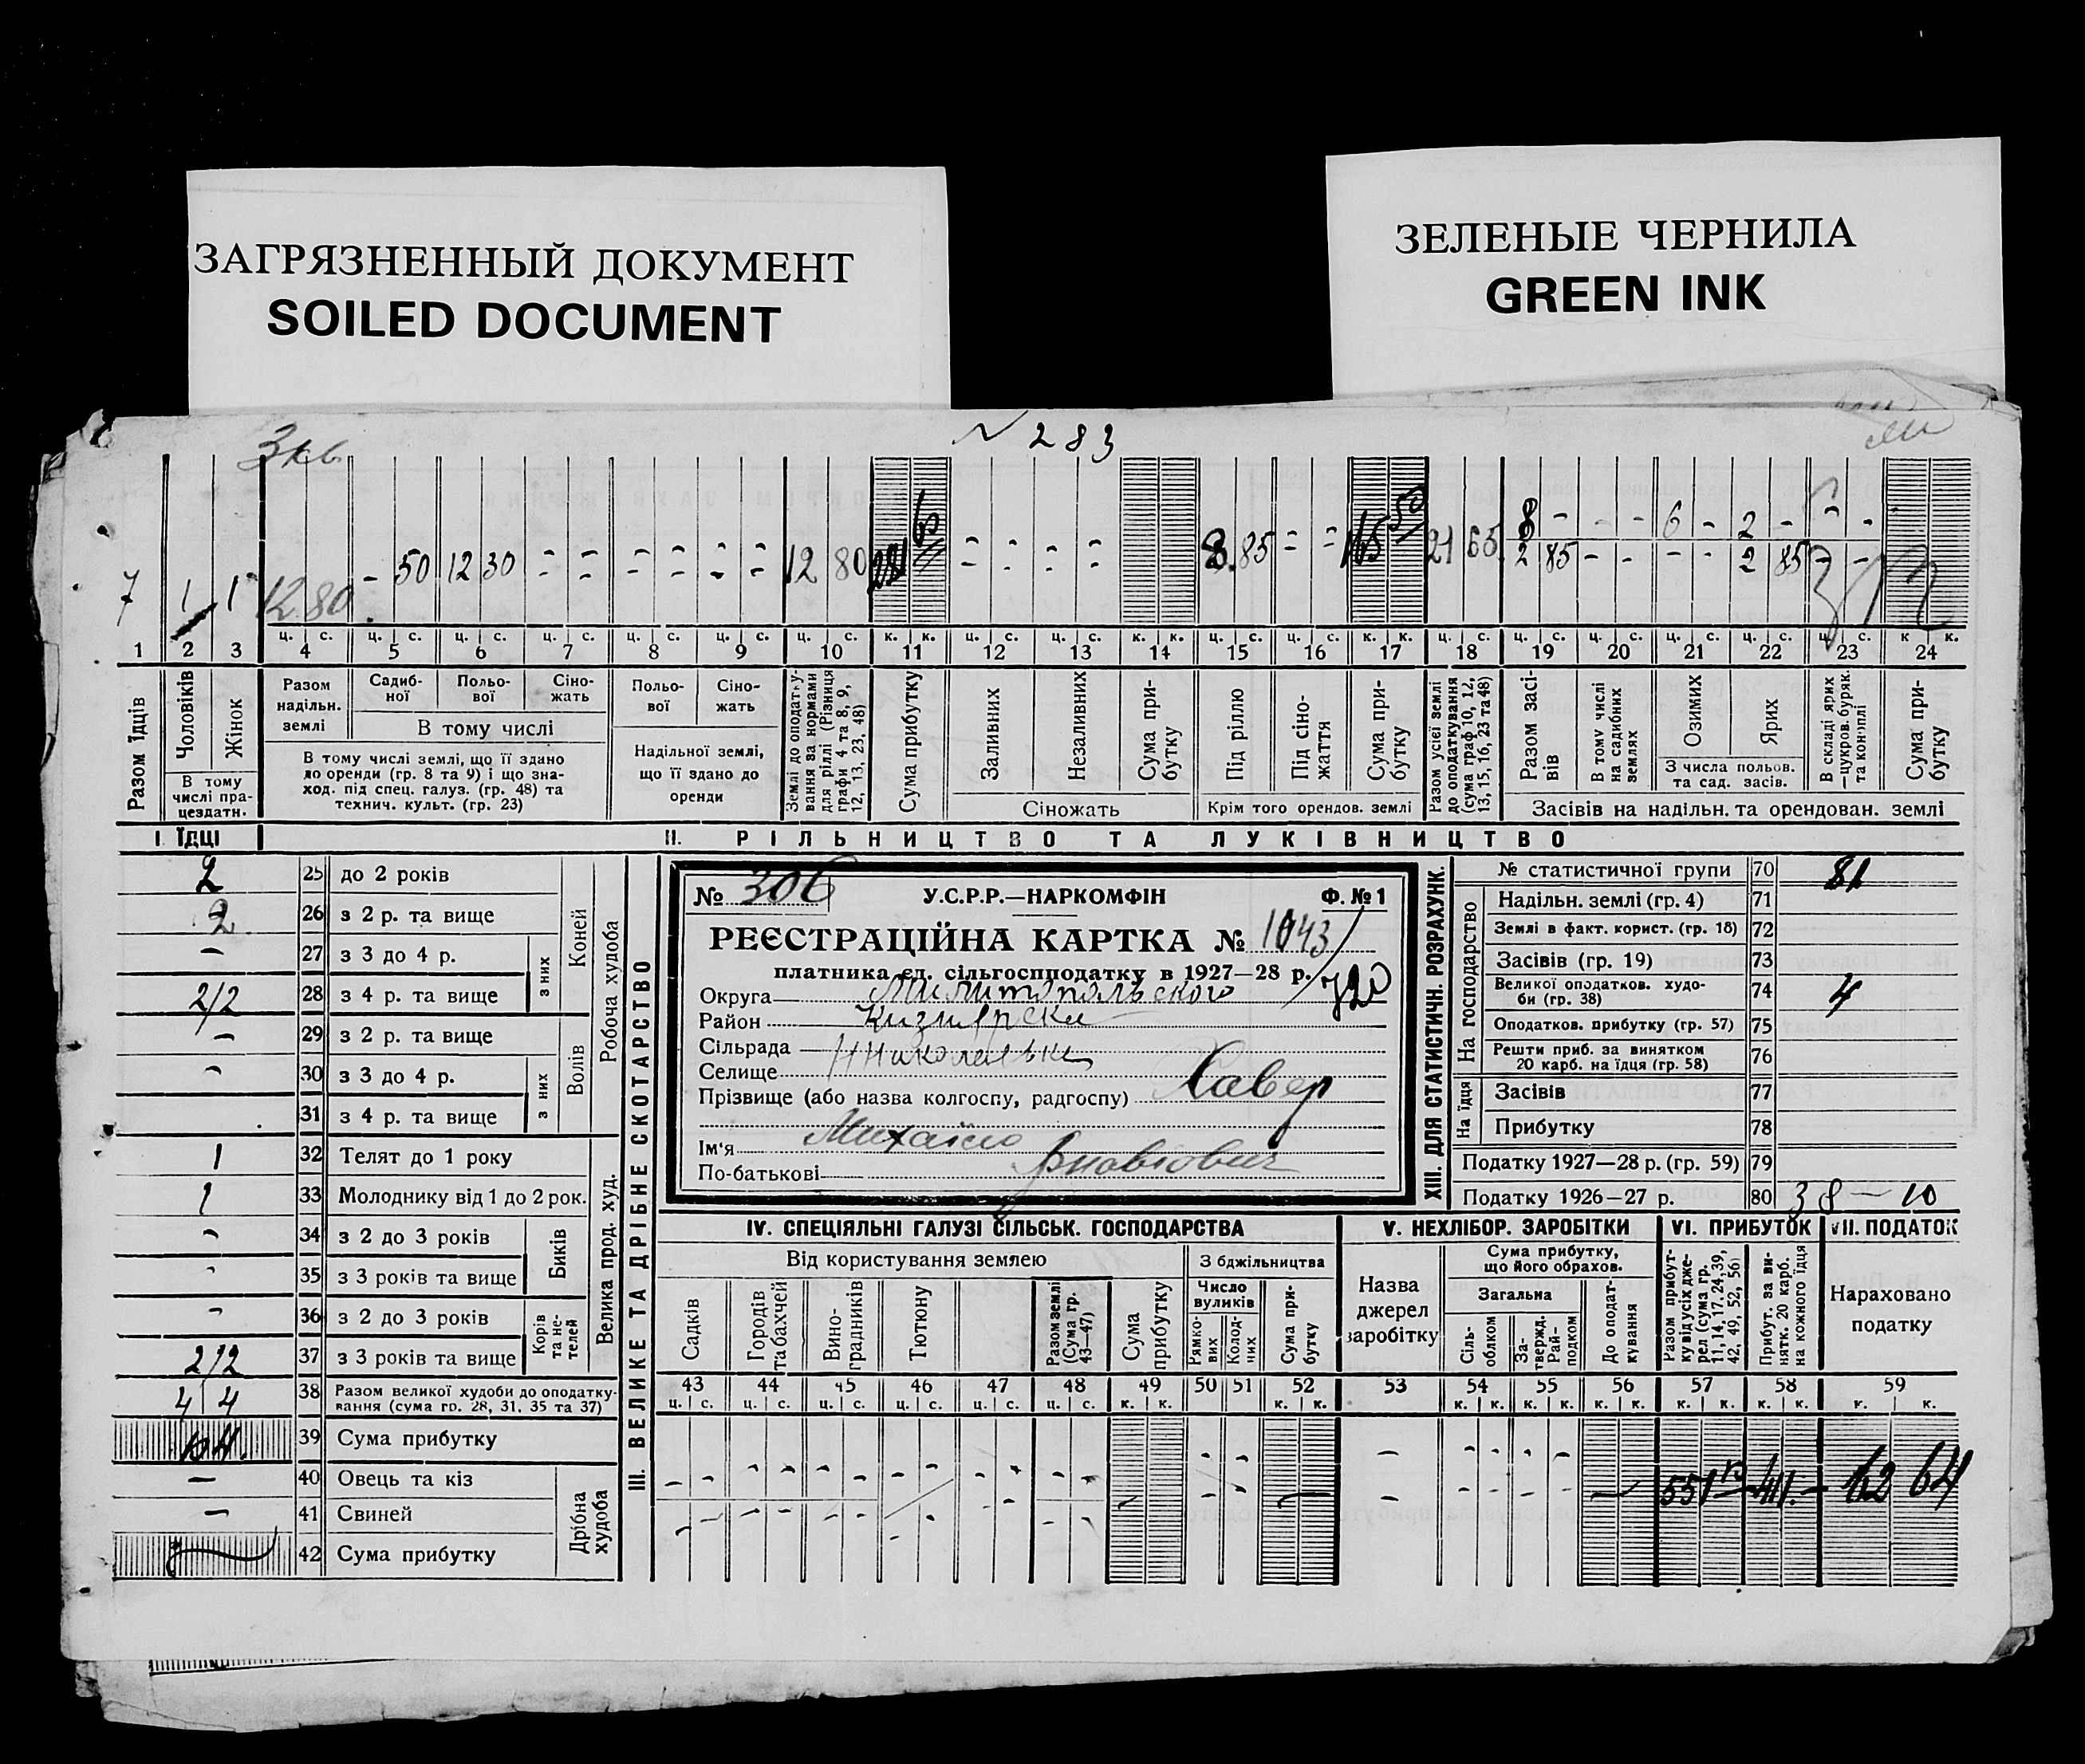 ЗАГРЯЗНЕННЫЙ ДОКУМЕНТ
SOILED DOCUMENT
ЗЕЛЕНЫЕ ЧЕРНИЛА
GREEN INK
N 283
7 1 1 12.80 - 50 12 30 - - - - - - 12 80 281 60 - - - - 8.85 - - 165 50 21 65 8 - - - 6 - 2 - - -
2 85 - - - - 2 85 - -
ц. с. ц. с. ц. с. ц. с. ц. с. ц. с. ц. с. к. к. ц. с. ц. с. к. к. ц. с. ц. с. к. к. ц. с. ц. с. ц. с. ц. с. ц. с. ц. с. к к.
1 2 3 4 5 6 7 8 9 10 11 12 13 14 15 16 17 18 19 20 21 22 23 24
Разом їдців
Чоловіків
Жінок
В тому числі пра-цездатн.
Разом надільн. землі
Садиб-ної
Польо-вої
Сіно-жать
В тому числі
В тому числі землі, що її здано
до оренди (гр. 8 та 9) і що зна-
ход. під спец. галуз. (гр. 48) та
технич. культ. (гр. 23)
Польо-вої
Сіно-жать
Надільної землі,
що її здано до
оренди
Землі до оподатку-вання за нормами для ріллі (Різниця графи 4 та 8, 9, 12, 13, 23, 48)
Сума прибутку
Заливних
Незаливних
Сума при-бутку
Сіножать
Під ріллю
Під сіно-жаття
Сума при-бутку
Крім того орендов. землі
Разом усієї землі до оподаткування (сума граф 10, 12, 13, 15, 16, 23 та 48)
Разом засі-вів
В тому числі на садибних землях
Озимих
Ярих
З числа польов. та сад. засів.
В складі ярих —цукров. буряк. та конплі
Сума при-бутку
Засівів на надільн. та орендован. землі
I. ЇДЦІ
II. РІЛЬНИЦТВО ТА ЛУКІВНИЦТВО
2 25 до 2 років
2 26 з 2 р. та вище
- 27 з 3 до 4 р.
2/2 28 з 4 р. та вище
- 29 з 2 р. та вище
- 30 з 3 до 4 р.
31 з 4 р. та вище
з них
Коней
з них
Волів
Робоча худоба
1 32 Телят до 1 року
1 33 Молоднику від 1 до 2 рок.
- 34 з 2 до 3 років
- 35 з 3 років та вище
Биків
- 36 з 2 до 3 років
2/2 37 з 3 років та вище
Корів та не-телей
Велика прод. худ.
4 4 38 Разом великої худоби до оподатку-
вання (сума гр. 28, 31, 35 та 37)
104. 39 Сума прибутку
- 40 Овець та кіз
- 41 Свиней
42 Сума прибутку
Дрібна худоба
III. ВЕЛИКЕ ТА ДРІБНЕ СКОТАРСТВО
№ 306
У.С.Р.Р.—НАРКОМФІН
Ф. № 1
РЕЄСТРАЦІЙНА КАРТКА № 1043/720
платника єд. сільгоспподатку в 1927—28 р.
Округа Милитопольского
Район
Сільрада
Селище
Прізвище (або назва колгоспу, радгоспу) Хавер
Ім'я Михаіло
По-батькові
XIII. ДЛЯ СТАТИСТИЧН. РОЗРАХУНК.
№ статистичної групи 70 81
На господарство
Надільн. землі (гр. 4) 71
Землі в факт. корист. (гр. 18) 72
Засівів (гр. 19) 73
Великої оподатков. худо-
би (гр. 38) 74 4
Оподатков. прибутку (гр. 57) 75
Решти приб. за винятком
20 карб. на їдця (гр. 58) 76
На їдця
Засівів 77
Прибутку 78
Податку 1927—28 р. (гр. 59) 79
Податку 1926—27 р. 80 38 - 10
IV. СПЕЦІЯЛЬНІ ГАЛУЗІ СІЛЬСЬК. ГОСПОДАРСТВА
V. НЕХЛІБОР. ЗАРОБІТКИ
VI. ПРИБУТОК
VII. ПОДАТОК
Від користування землею
З бджільництва
Садків
Городів та бахчей
Вино-градників
Тютюну
Разом землі (Сума гр. 43—47)
Сума прибутку
Число вуликів
Рямко-вих
Колод-них
Сума при-бутку
Назва джерел заробітку
Сума прибутку, що його обрахов.
Загальна
Сіль-облком
За-твердж. Рай-подком
До оподат-кування
Разом прибут-ку від усіх дже-рел (сума гр. 11, 14, 17, 24, 39, 42, 49, 52, 56)
Прибут. за ви-нятк. 20 карб. на кожного їдця
Нараховано податку
43 44 45 46 47 48 49 50 51 52 53 54 55 56 57 58 59
ц. с. ц. с. ц. с. ц. с. ц. с. ц. с. к. к. к. к. к. к. к. к. к. к. к. к. к. к. к. к.
551 411.- 62 64